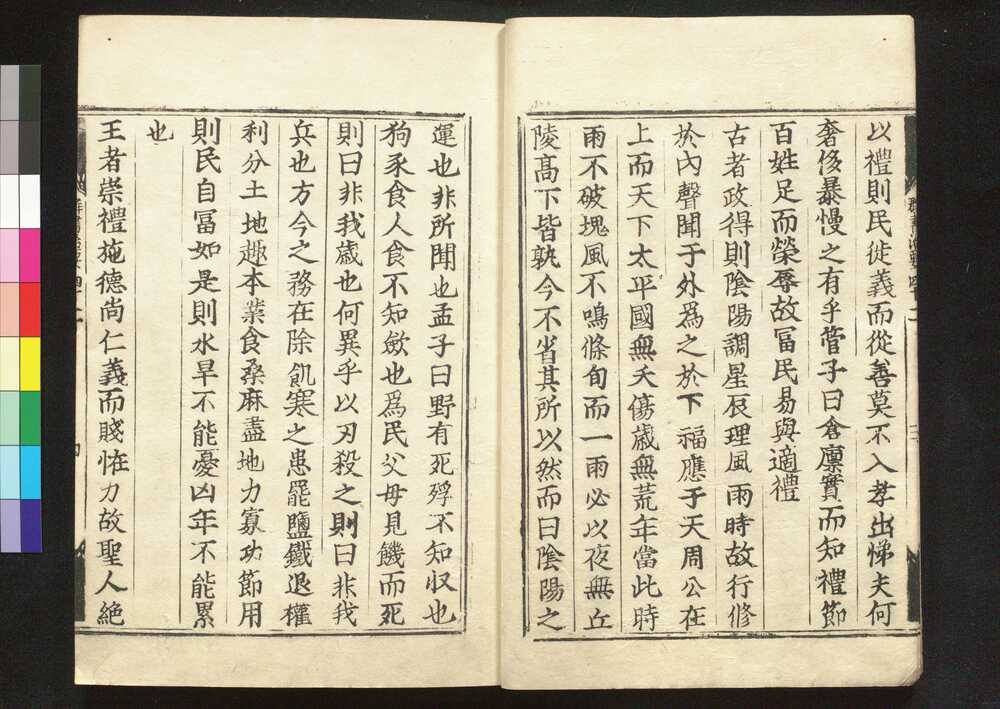 以禮則民徙義而從善莫不入孝出悌夫何
奢侈暴慢之有乎管子曰倉廩實而知禮節
百姓足而榮辱故冨民易與適禮
古者政得則陰陽調星辰理風雨時故行修
於內聲聞于外爲之於下福應于天周公在
上而天下太平國無夭傷歳無荒年當此時
雨不破塊風不鳴條旬而一雨必以夜無丘
陵髙下皆孰今不省其所以然而曰陰陽之
運也非所聞也孟子曰野有死殍不知収也
狗豕食人食不知斂也爲民父母見饑而死
則曰非我歳也何異乎以刃殺之則曰非我
兵也方今之務在除飢寒之患罷鹽鐵退權
利分土地趣本業食桑麻盡地力寡功節用
則民自冨如是則水旱不能憂凶年不能累
也
王者崇禮施德尚仁義而賤恠力故聖人絶